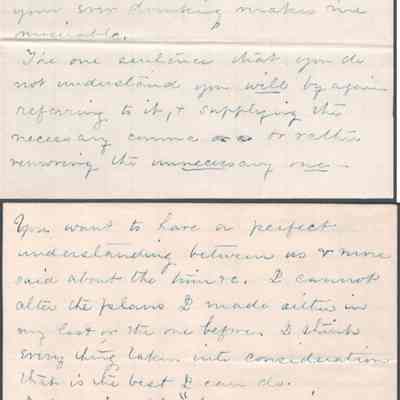 your ever drinking makes me
miserable.
The one sentence that you do
not understand you will by again
referring to it, & supplying the
necessary comma or rather
removing the unnecessary one.
You want to have a perfect
understanding between us & more
said about the time &c. I cannot
alter the plans I made either in
my last or the one before. I think
every thing taken into consideration
that is the best I can do.